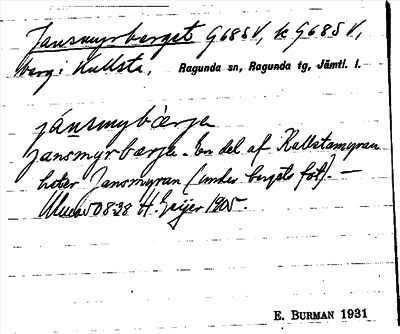 Jansmyrberget G685V, k G685V,
berg i Kullsta, Ragunda sn, Ragunda tg, Jämtl. l.
jánsmybàrje
jansmyrbarje. En del af Kullstamyran
heter Jansmyran (under bergets fot). —
50838 H. Geijer 1905.
E. BURMAN 1931